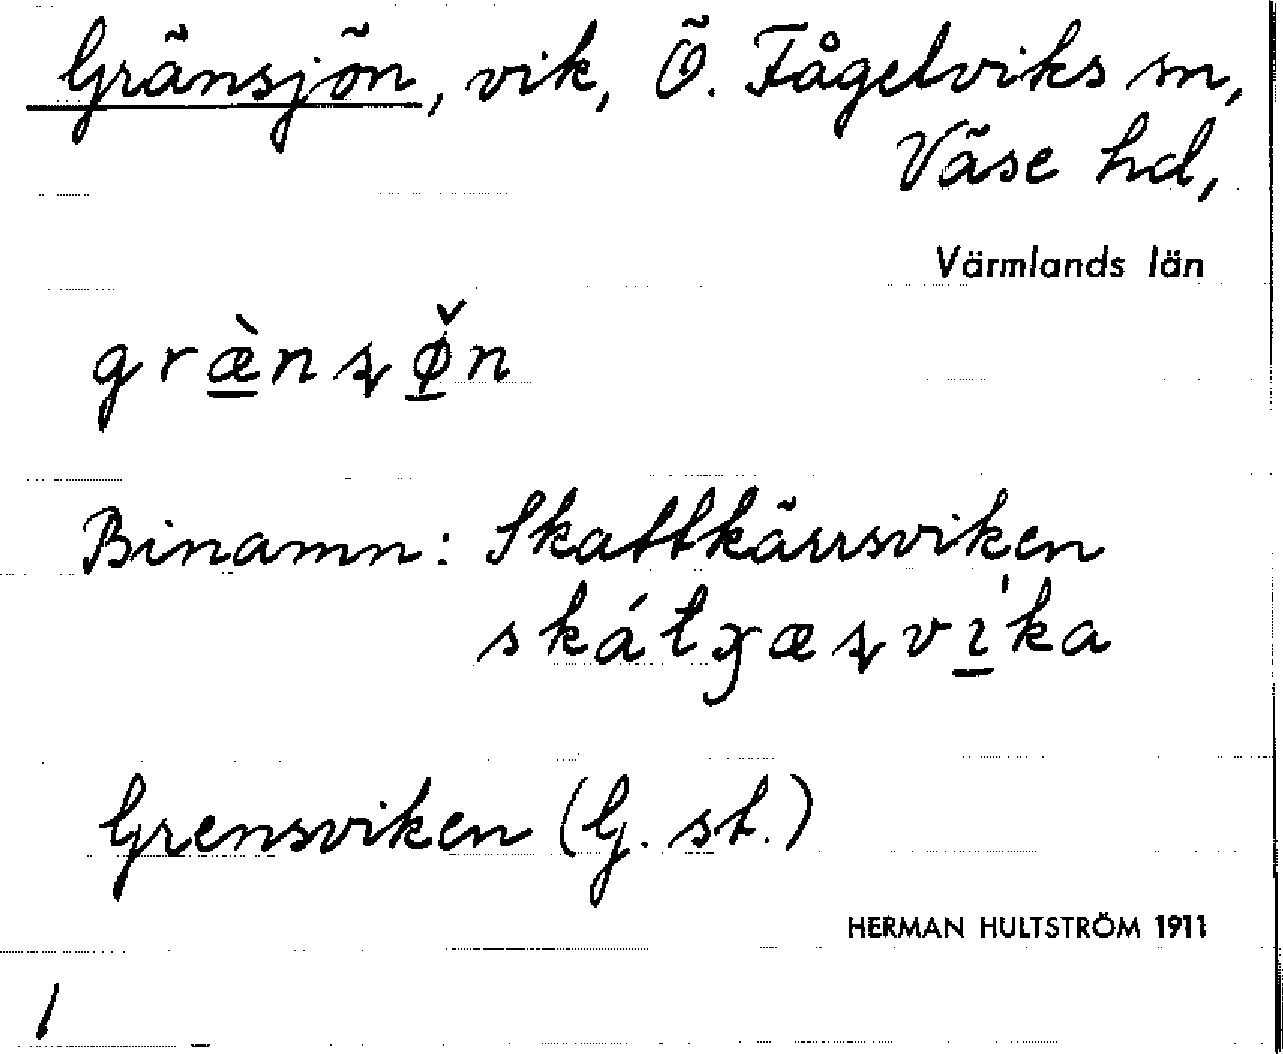 Gränsjön, vik, Ö. Fågelviks sn,
Väse hd,
Värmlands län
græ̱̀nʂø̱̌n
Binamn: Skattkärrsviken
skátɣæʂvı̱̍ka
Grensviken (G. st.)
HERMAN HULTSTRÖM 1911
1